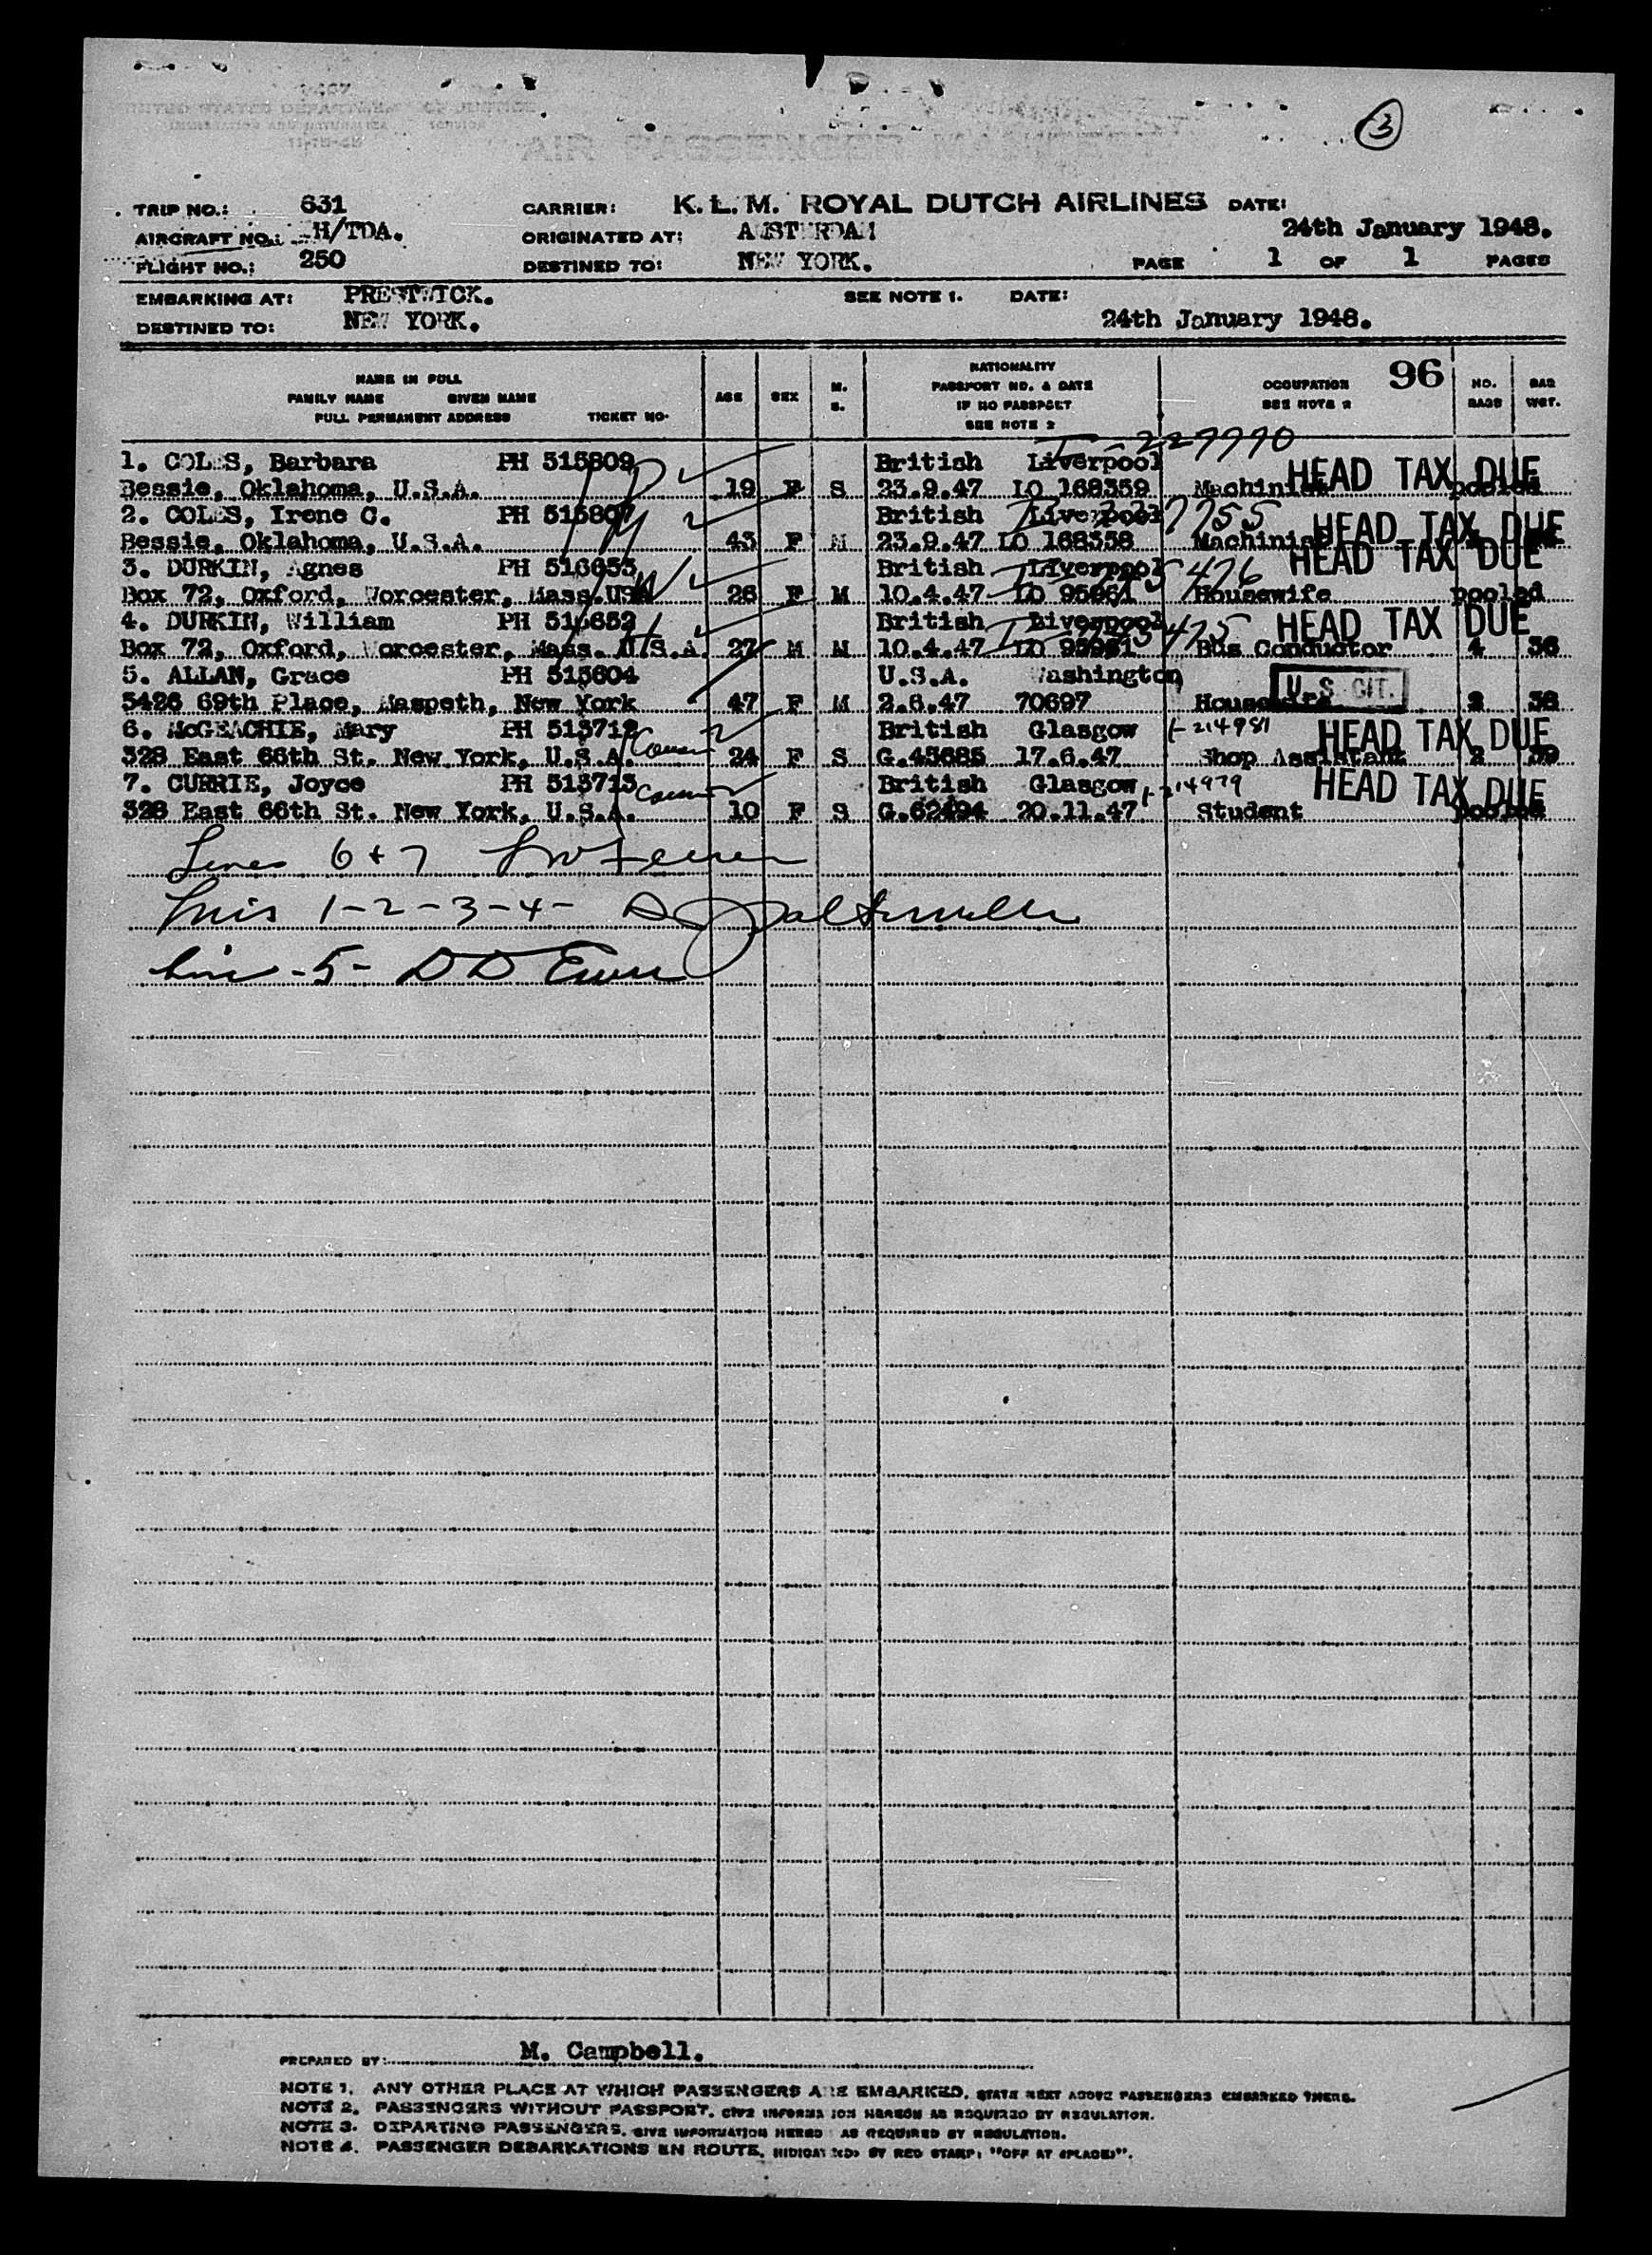 3
TRIP NO.: 631 CARRIER: K.L.M. ROYAL DUTCH AIRLINES DATE:
AIRCRAFT NO.: H/TDA. ORIGINATED AT: AMSTERDAM 24th January 1948.
FLIGHT NO.: 250 DESTINED TO: NEW YORK. PAGE 1 OF 1 PAGES
EMBARKING AT: PRESTWICK. SEE NOTE 1. DATE:
DESTINED TO: NEW YORK. 24th January 1948.
NAME IN FULL
FAMILY NAME GIVEN NAME
FULL PERMANENT ADDRESS TICKET NO.
AGE SEX M. S.
NATIONALITY
PASSPORT NO. & DATE
IF NO PASSPORT
SEE NOTE 2
OCCUPATION
SEE NOTE 2
96
NO. BAGS
BAG WGT.
1. COLES, Barbara PH 515809 British Liverpool
Bessie, Oklahoma, U.S.A. 19 F S 23.9.47 LO 168359 Machinist HEAD TAX DUE pooled
2. COLES, Irene C. PH 515807 British Liverpool
Bessie, Oklahoma, U.S.A. 43 F M 23.9.47 LO 168358 Machinist HEAD TAX DUE
3. DURKIN, Agnes PH 516653 British Liverpool HEAD TAX DUE
Box 72, Oxford, Worcester, Mass. USA 26 F M 10.4.47 LO 95961 Housewife pooled
4. DURKIN, William PH 516652 British Liverpool HEAD TAX DUE
Box 72, Oxford, Worcester, Mass. U.S.A. 27 M M 10.4.47 LO 95961 Bus Conductor 4 36
5. ALLAN, Grace PH 515604 U.S.A. Washington U.S. CIT.
5426 69th Place, Maspeth, New York 47 F M 2.6.47 70697 Housewife 2 38
6. McGEACHIE, Mary PH 513712 British Glasgow I-214981 HEAD TAX DUE
328 East 66th St. New York, U.S.A. 24 F S G.45685 17.6.47 Shop Assistant 2 39
7. CURRIE, Joyce PH 513713 British Glasgow I-214979 HEAD TAX DUE
328 East 66th St. New York, U.S.A. 10 F S G.62494 20.11.47 Student pooled
Lines 6+7
Lines 1-2-3-4-
Line -5- D D
PREPARED BY: M. Campbell.
NOTE 1. ANY OTHER PLACE AT WHICH PASSENGERS ARE EMBARKED. STATE NEXT ABOVE PASSENGERS EMBARKED THERE.
NOTE 2. PASSENGERS WITHOUT PASSPORT. GIVE INFORMATION HEREON AS REQUIRED BY REGULATION.
NOTE 3. DEPARTING PASSENGERS. GIVE INFORMATION HEREON AS REQUIRED BY REGULATION.
NOTE 4. PASSENGER DEBARKATIONS EN ROUTE. INDICATED BY RED STAMP: "OFF AT (PLACE)".